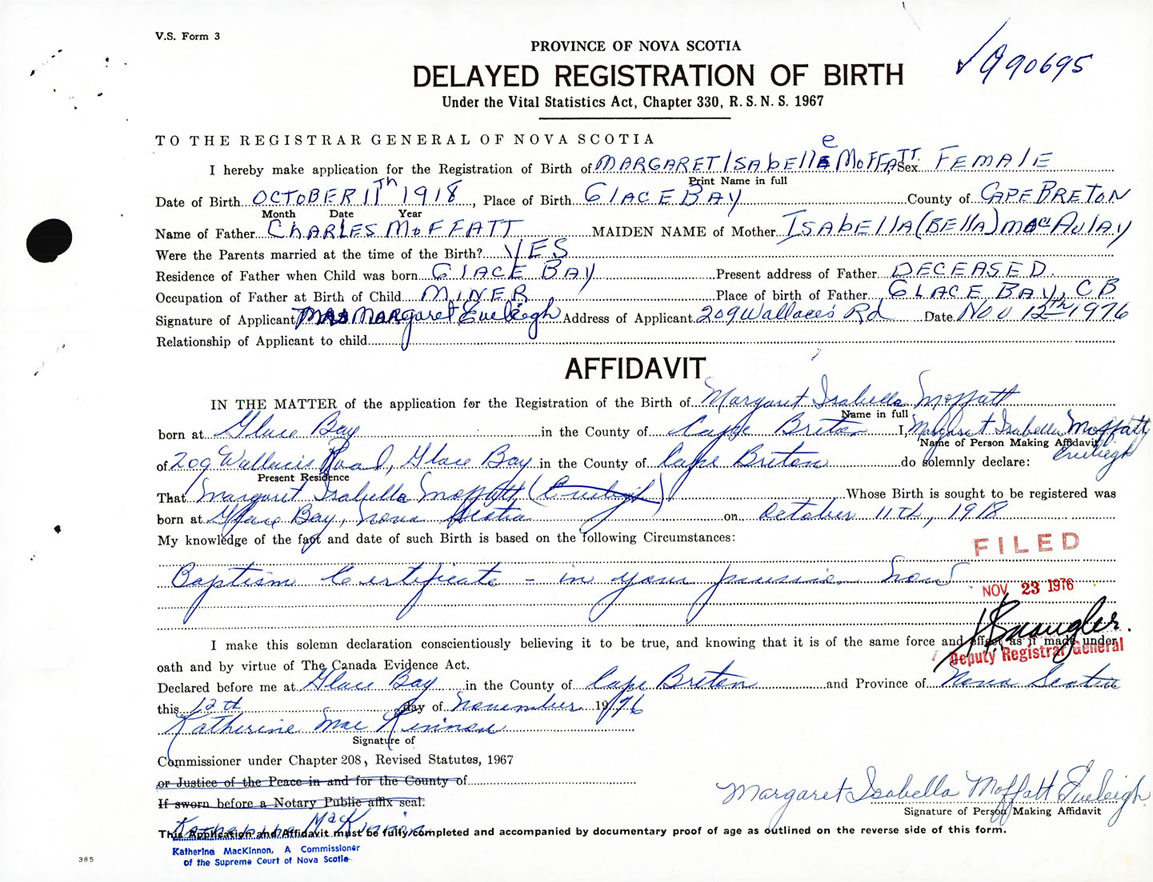 V.S. Form 3
PROVINCE OF NOVA SCOTIA
✓990695
DELAYED REGISTRATION OF BIRTH
Under the Vital Statistics Act, Chapter 330, R. S. N. S. 1967
TO THE REGISTRAR GENERAL OF NOVA SCOTIA
I hereby make application for the Registration of Birth of MARGARET ISAbELLe MOFFATT, Sex FEMALE
Print Name in full
Date of Birth OCTOBER 11Th 1918, Place of Birth GlACE BAY County of CAPE BRETON
Month Date Year
Name of Father ChARLES MOFFATT MAIDEN NAME of Mother ISAbEllA (BEllA) MacAulAY
Were the Parents married at the time of the Birth? YES
Residence of Father when Child was born GlACE BAY Present address of Father DECEASED.
Occupation of Father at Birth of Child MINER Place of birth of Father GLACE BAY, CB
Signature of Applicant Mrs Margaret Eveleigh Address of Applicant 209 Wallace's Rd Date Nov 12th 1976
Relationship of Applicant to child
AFFIDAVIT
IN THE MATTER of the application for the Registration of the Birth of Margaret Isabella Moffatt
Name in full
born at Glace Bay in the County of Cape Breton I, Margaret Isabella Moffatt Eveleigh
Name of Person Making Affidavit
of 209 Wallace's Road, Glace Bay in the County of Cape Breton do solemnly declare:
Present Residence
That Margaret Isabella Moffatt (Eveleigh) Whose Birth is sought to be registered was
born at Glace Bay, Nova Scotia on October 11th, 1918
My knowledge of the fact and date of such Birth is based on the following Circumstances:
FILED
Baptism Certificate - in your possession now
NOV 23 1976
I make this solemn declaration conscientiously believing it to be true, and knowing that it is of the same force and effect as if made under
Deputy Registrar General
oath and by virtue of The Canada Evidence Act.
Declared before me at Glace Bay in the County of Cape Breton and Province of Nova Scotia
this 12th day of November 1976
Katherine MacKinnon
Signature of
Commissioner under Chapter 208, Revised Statutes, 1967
or Justice of the Peace in and for the County of
If sworn before a Notary Public affix seal.
Margaret Isabella Moffatt Eveleigh
Signature of Person Making Affidavit
Katherine MacKinnon
This Application and Affidavit must be fully completed and accompanied by documentary proof of age as outlined on the reverse side of this form.
Katherine MacKinnon, A Commissioner
of the Supreme Court of Nova Scotia
385